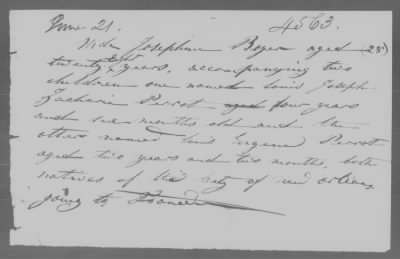 June 21. 4563.
Wid. Josephine Boyer aged (28)
twenty eight years, accompanying two
children one named Louis Joseph
Zacharie Perrot aged four years
and six months old and the
others named Louis Eugene Perrot
aged two years and two months, both
natives of this city of new orleans,
going to France